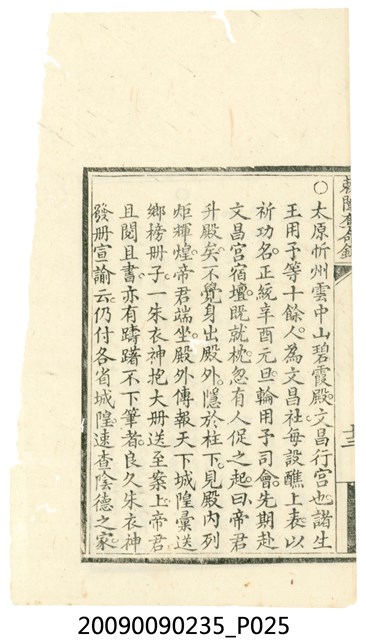 ○太原忻州雲中山碧霞殿。文昌行宮也。諸生
王用予等十餘人。為文昌社。每設醮上表。以
祈功名。正統辛酉元旦。輪用予司會。先期赴
文昌宮宿壇。既就枕。忽有人促之起。曰。帝君
升殿矣。不覺身出殿外。隱於柱下。見殿內列
炬輝煌。帝君端坐。殿外傳報天下城隍彙送
鄉榜冊子。一朱衣神抱大冊送至案上。帝君
且閱且書。亦有躊躇不下筆者。良久朱衣神
發冊宣諭云。仍付各省城隍。速查陰德之家。
十二
20090090235_P025